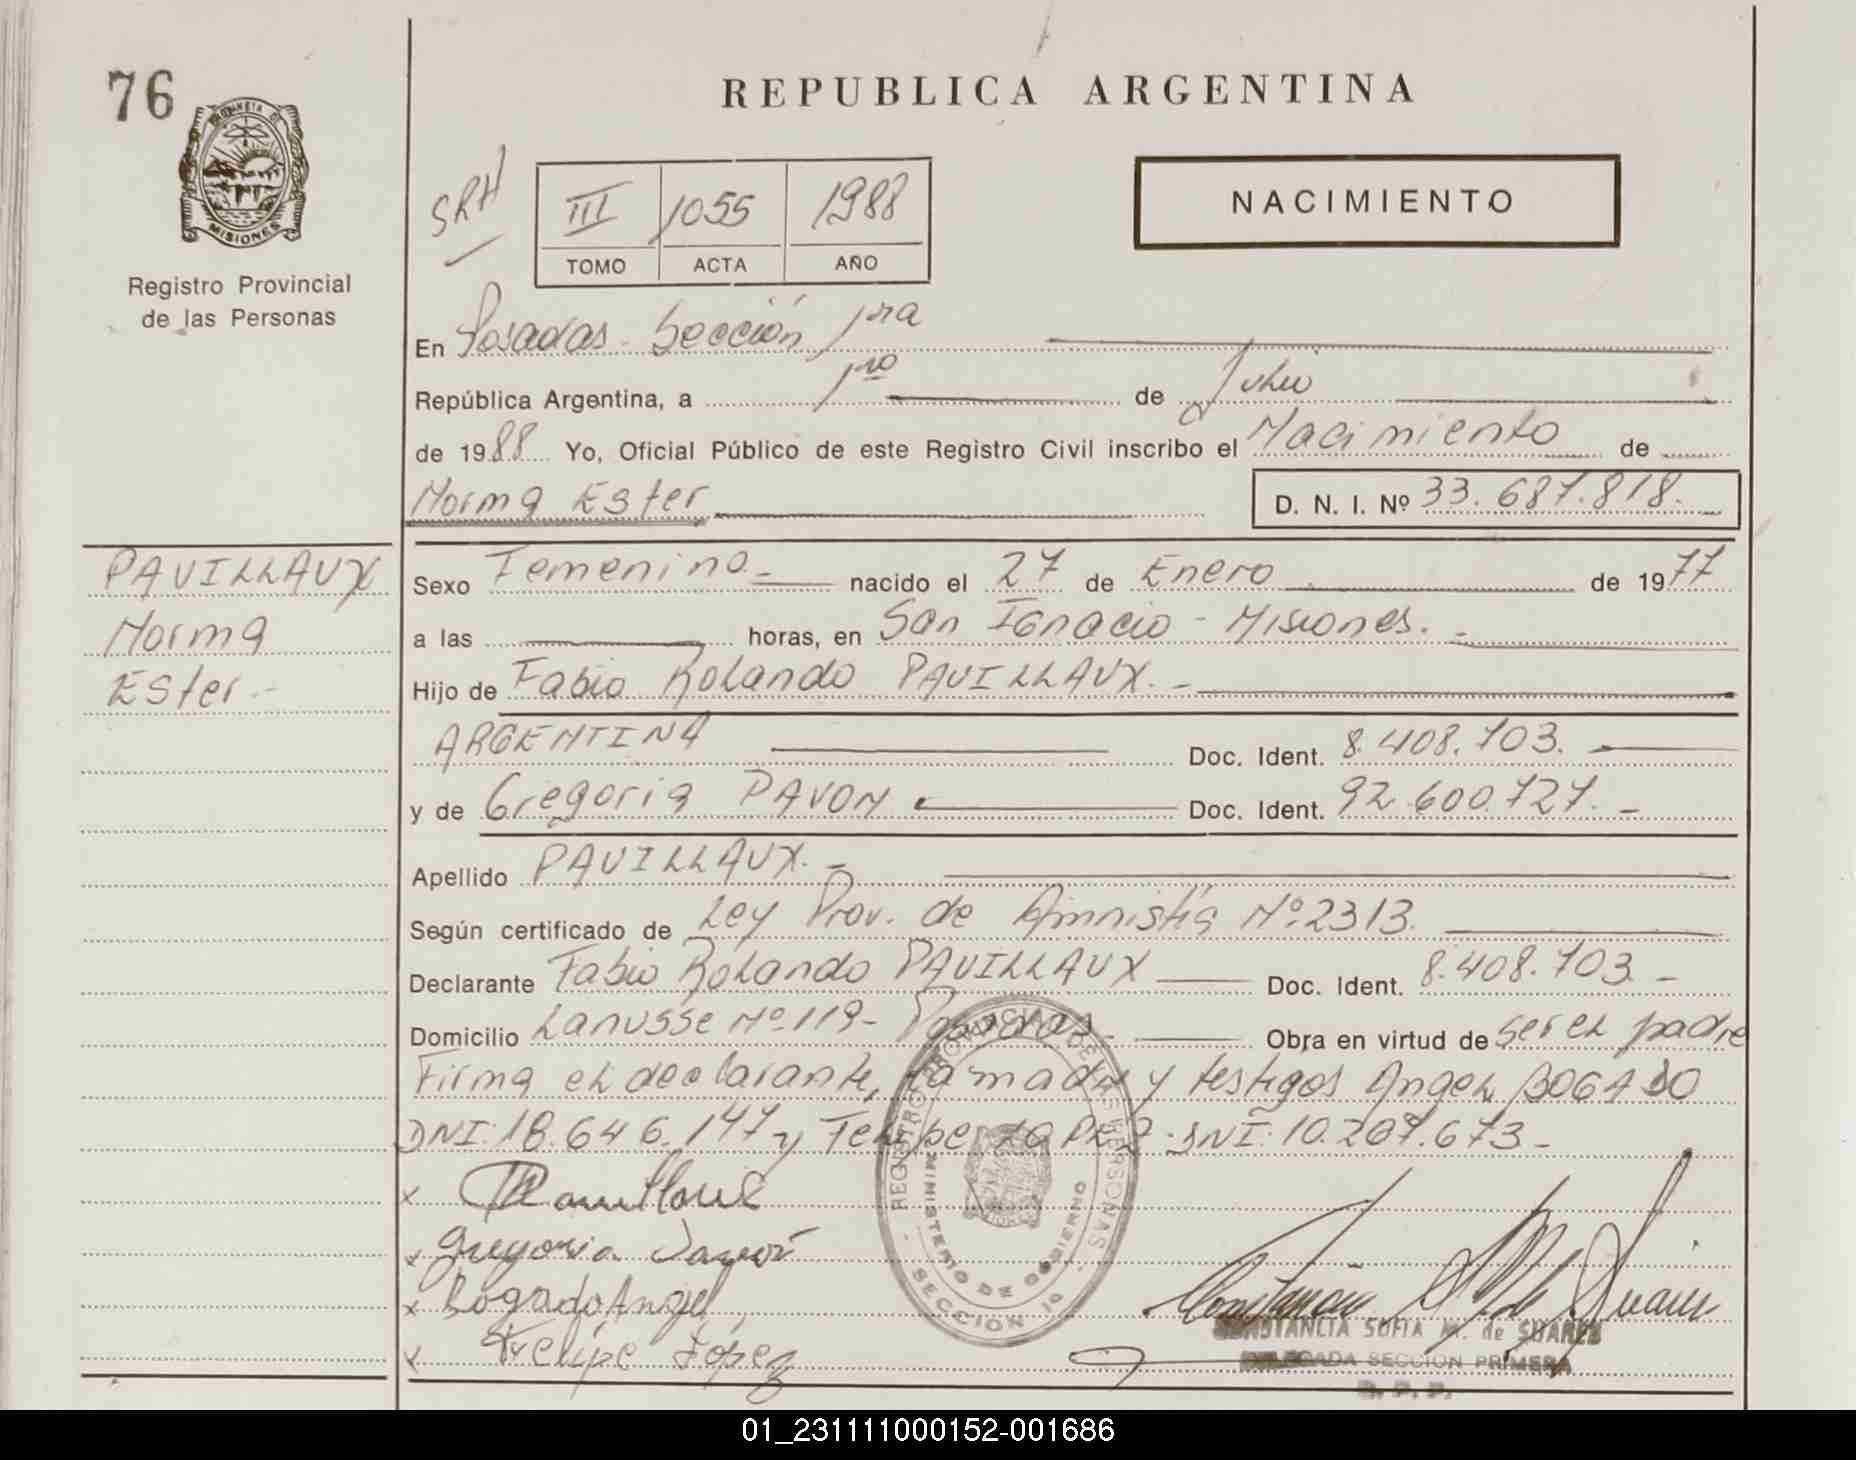 76
REPUBLICA ARGENTINA
PROVINCIA DE
MISIONES
Registro Provincial
de las Personas
SRH
III 1055 1988
TOMO ACTA AÑO
NACIMIENTO
En Posadas - Sección 1ra
República Argentina, a 1ro de Julio
de 1988 Yo, Oficial Público de este Registro Civil inscribo el Nacimiento de
Norma Ester D. N. I. Nº 33.687.818.
PAVILLAUX
Norma
Ester.-
Sexo Femenino.- nacido el 27 de Enero de 1977
a las horas, en San Ignacio - Misiones.-
Hijo de Fabio Rolando PAVILLAUX.-
ARGENTINA Doc. Ident. 8.408.703.-
y de Gregoria PAVON Doc. Ident. 92.600.727.-
Apellido PAVILLAUX.-
Según certificado de Ley Prov. de Amnistía Nº 2313.
Declarante Fabio Rolando PAVILLAUX Doc. Ident. 8.408.703.-
Domicilio Lanusse Nº 119- Posadas.- Obra en virtud de ser el padre
Firma el declarante, la madre y testigos Angel BOGADO
DNI: 18.646.147 y Felipe LOPEZ - DNI: 10.207.673-
x
x Gregoria Pavón
x Bogado Angel
x Felipe López
REGISTRO PROVINCIAL DE LAS PERSONAS
MINISTERIO DE GOBIERNO
- SECCION 1a -
CONSTANCIA SOFIA M. de SUAREZ
DELEGADA SECCION PRIMERA
R. P. P.
01_231111000152-001686